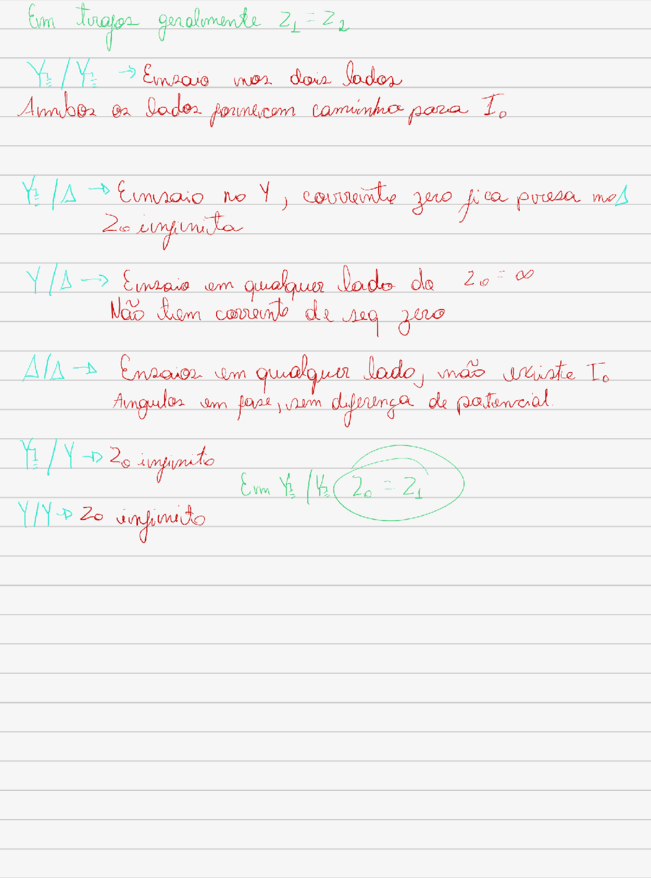 Em trafos geralmente Z₁ = Z₂
Y⏚ / Y⏚ → Ensaio nos dois lados
Ambos os lados fornecem caminho para I₀
Y⏚ / Δ → Ensaio no Y, corrente zero fica presa no Δ
Z₀ infinita
Y / Δ → Ensaio em qualquer lado da Z₀ = ∞
Não tem corrente de seq zero
Δ/Δ → Ensaios em qualquer lado, não existe I₀
Angulos em fase, sem diferença de potencial.
Y⏚ / Y → Z₀ infinito
Em Y⏚ / Y⏚ Z₀ = Z₁
Y/Y → Z₀ infinito